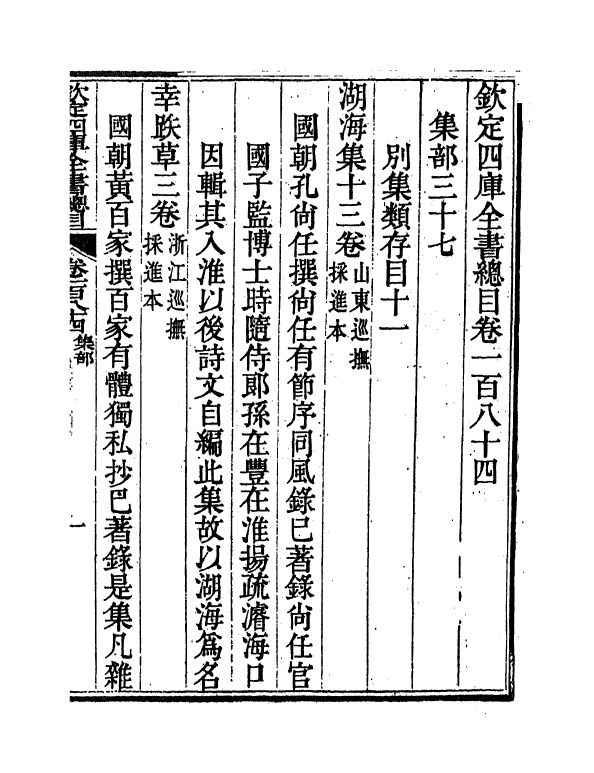 欽定四庫全書總目卷一百八十四
集部三十七
別集類存目十一
湖海集十三卷山東巡撫採進本
國朝孔尙任撰尙任有節序同風錄已著錄尙任官
國子監博士時隨侍郞孫在豐在淮揚疏濬海口
因輯其入淮以後詩文自編此集故以湖海爲名
幸跌草三卷浙江巡撫採進本
國朝黃百家撰百家有體獨私抄巳著錄是集凡雜
欽定四庫全書總目 卷一百八十四 集部 一